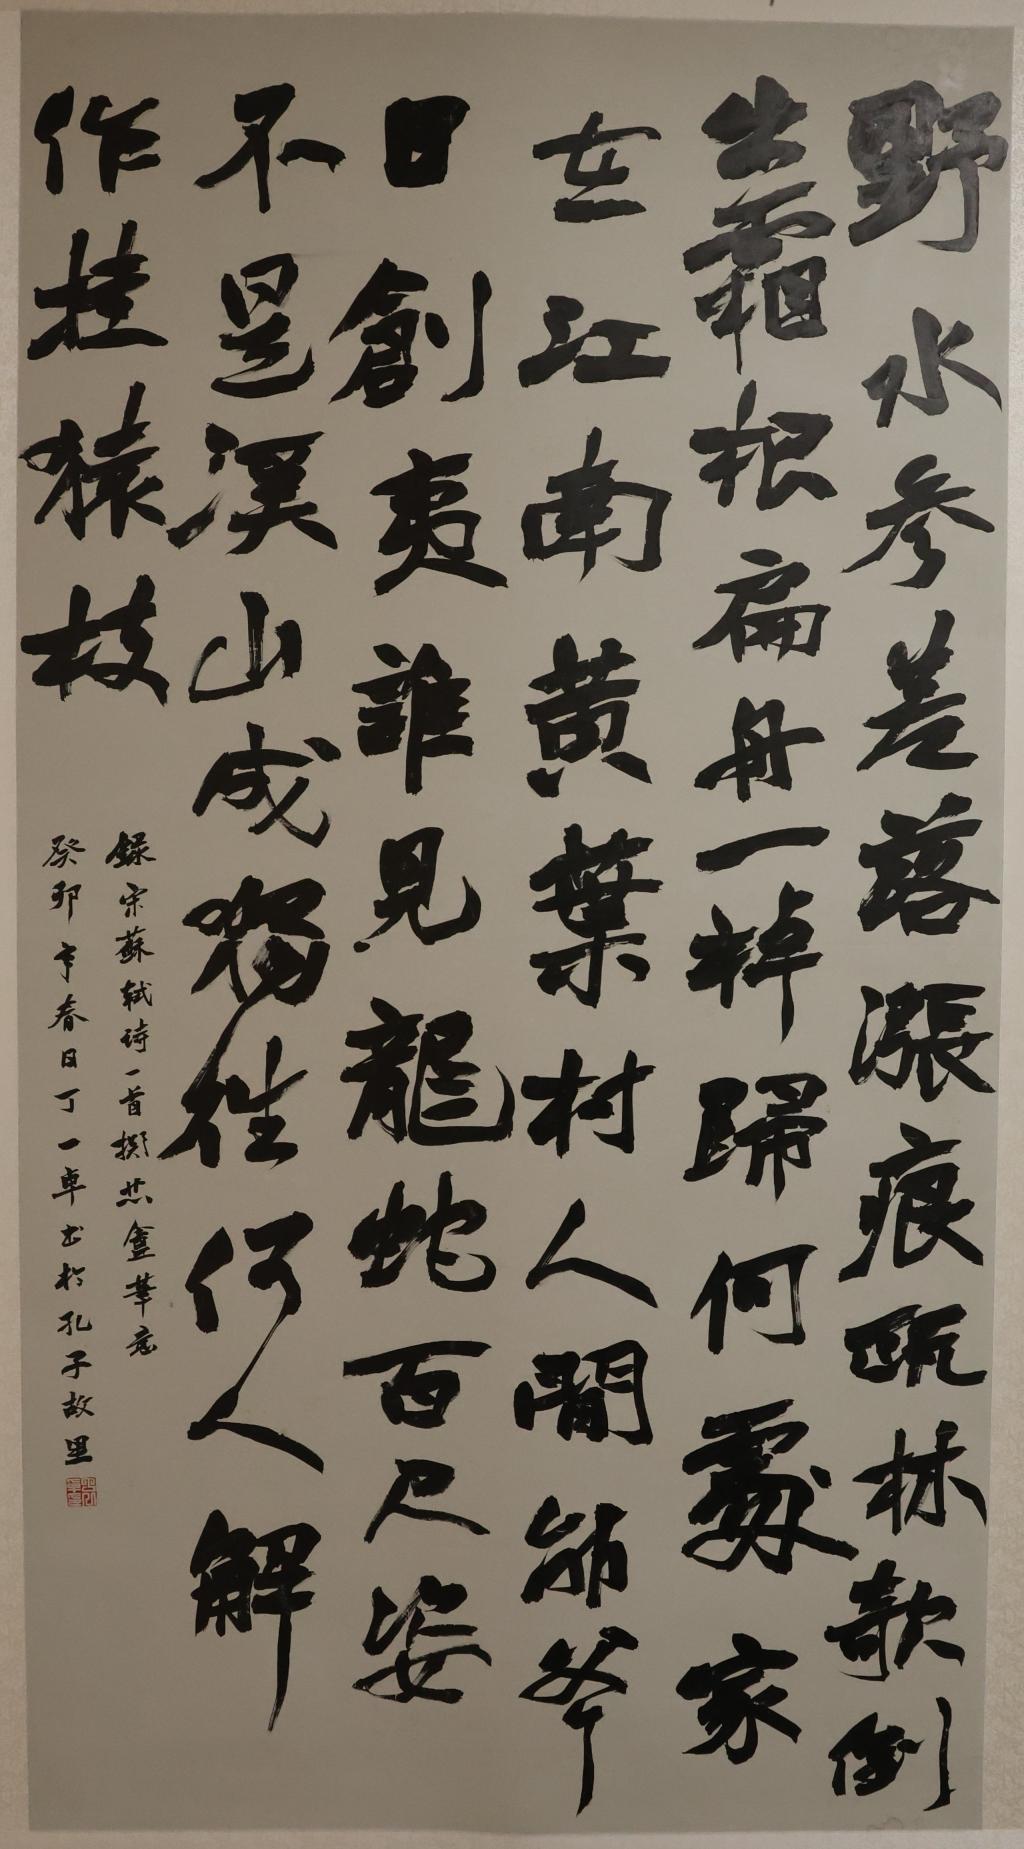 野水參差落漲痕疏林欹倒
出霜根扁舟一棹歸何處家
在江南黃葉村人間斤斧
日創夷誰見龍蛇百尺姿
不是溪山成獨往何人解
作挂猿枝
錄宋蘇軾诗一首擬苦盦筆意
癸卯春日丁一卓书於孔子故里